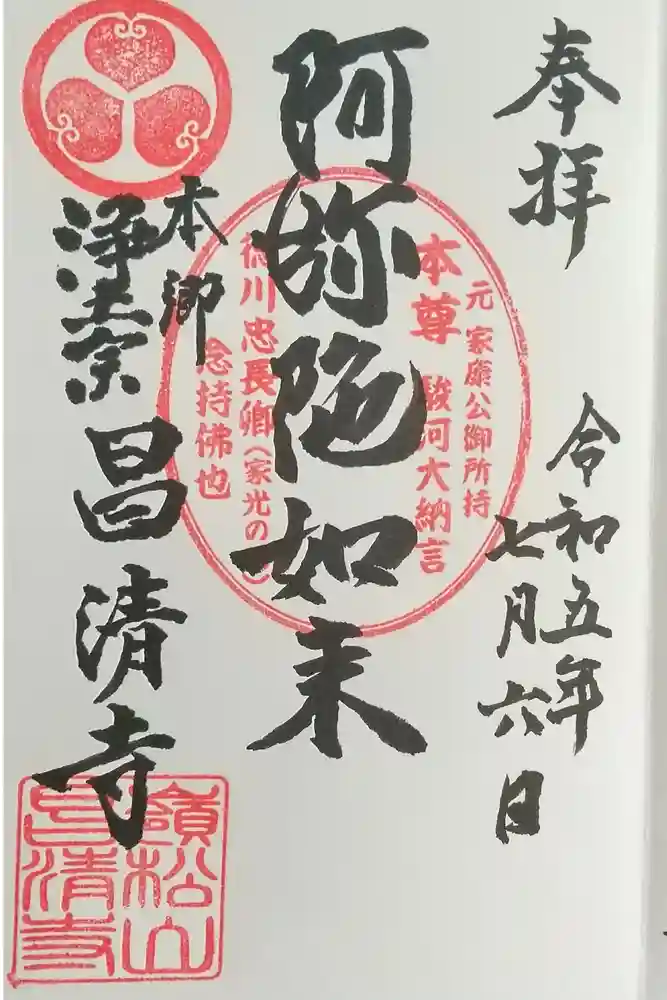 奉拝
令和五年
七月六日
阿弥陀如来
元 家康公御所持
本尊 駿河大納言
徳川忠長卿(家光の
念持佛也
本郷
浄土宗 昌清寺
嶺松山
昌清寺